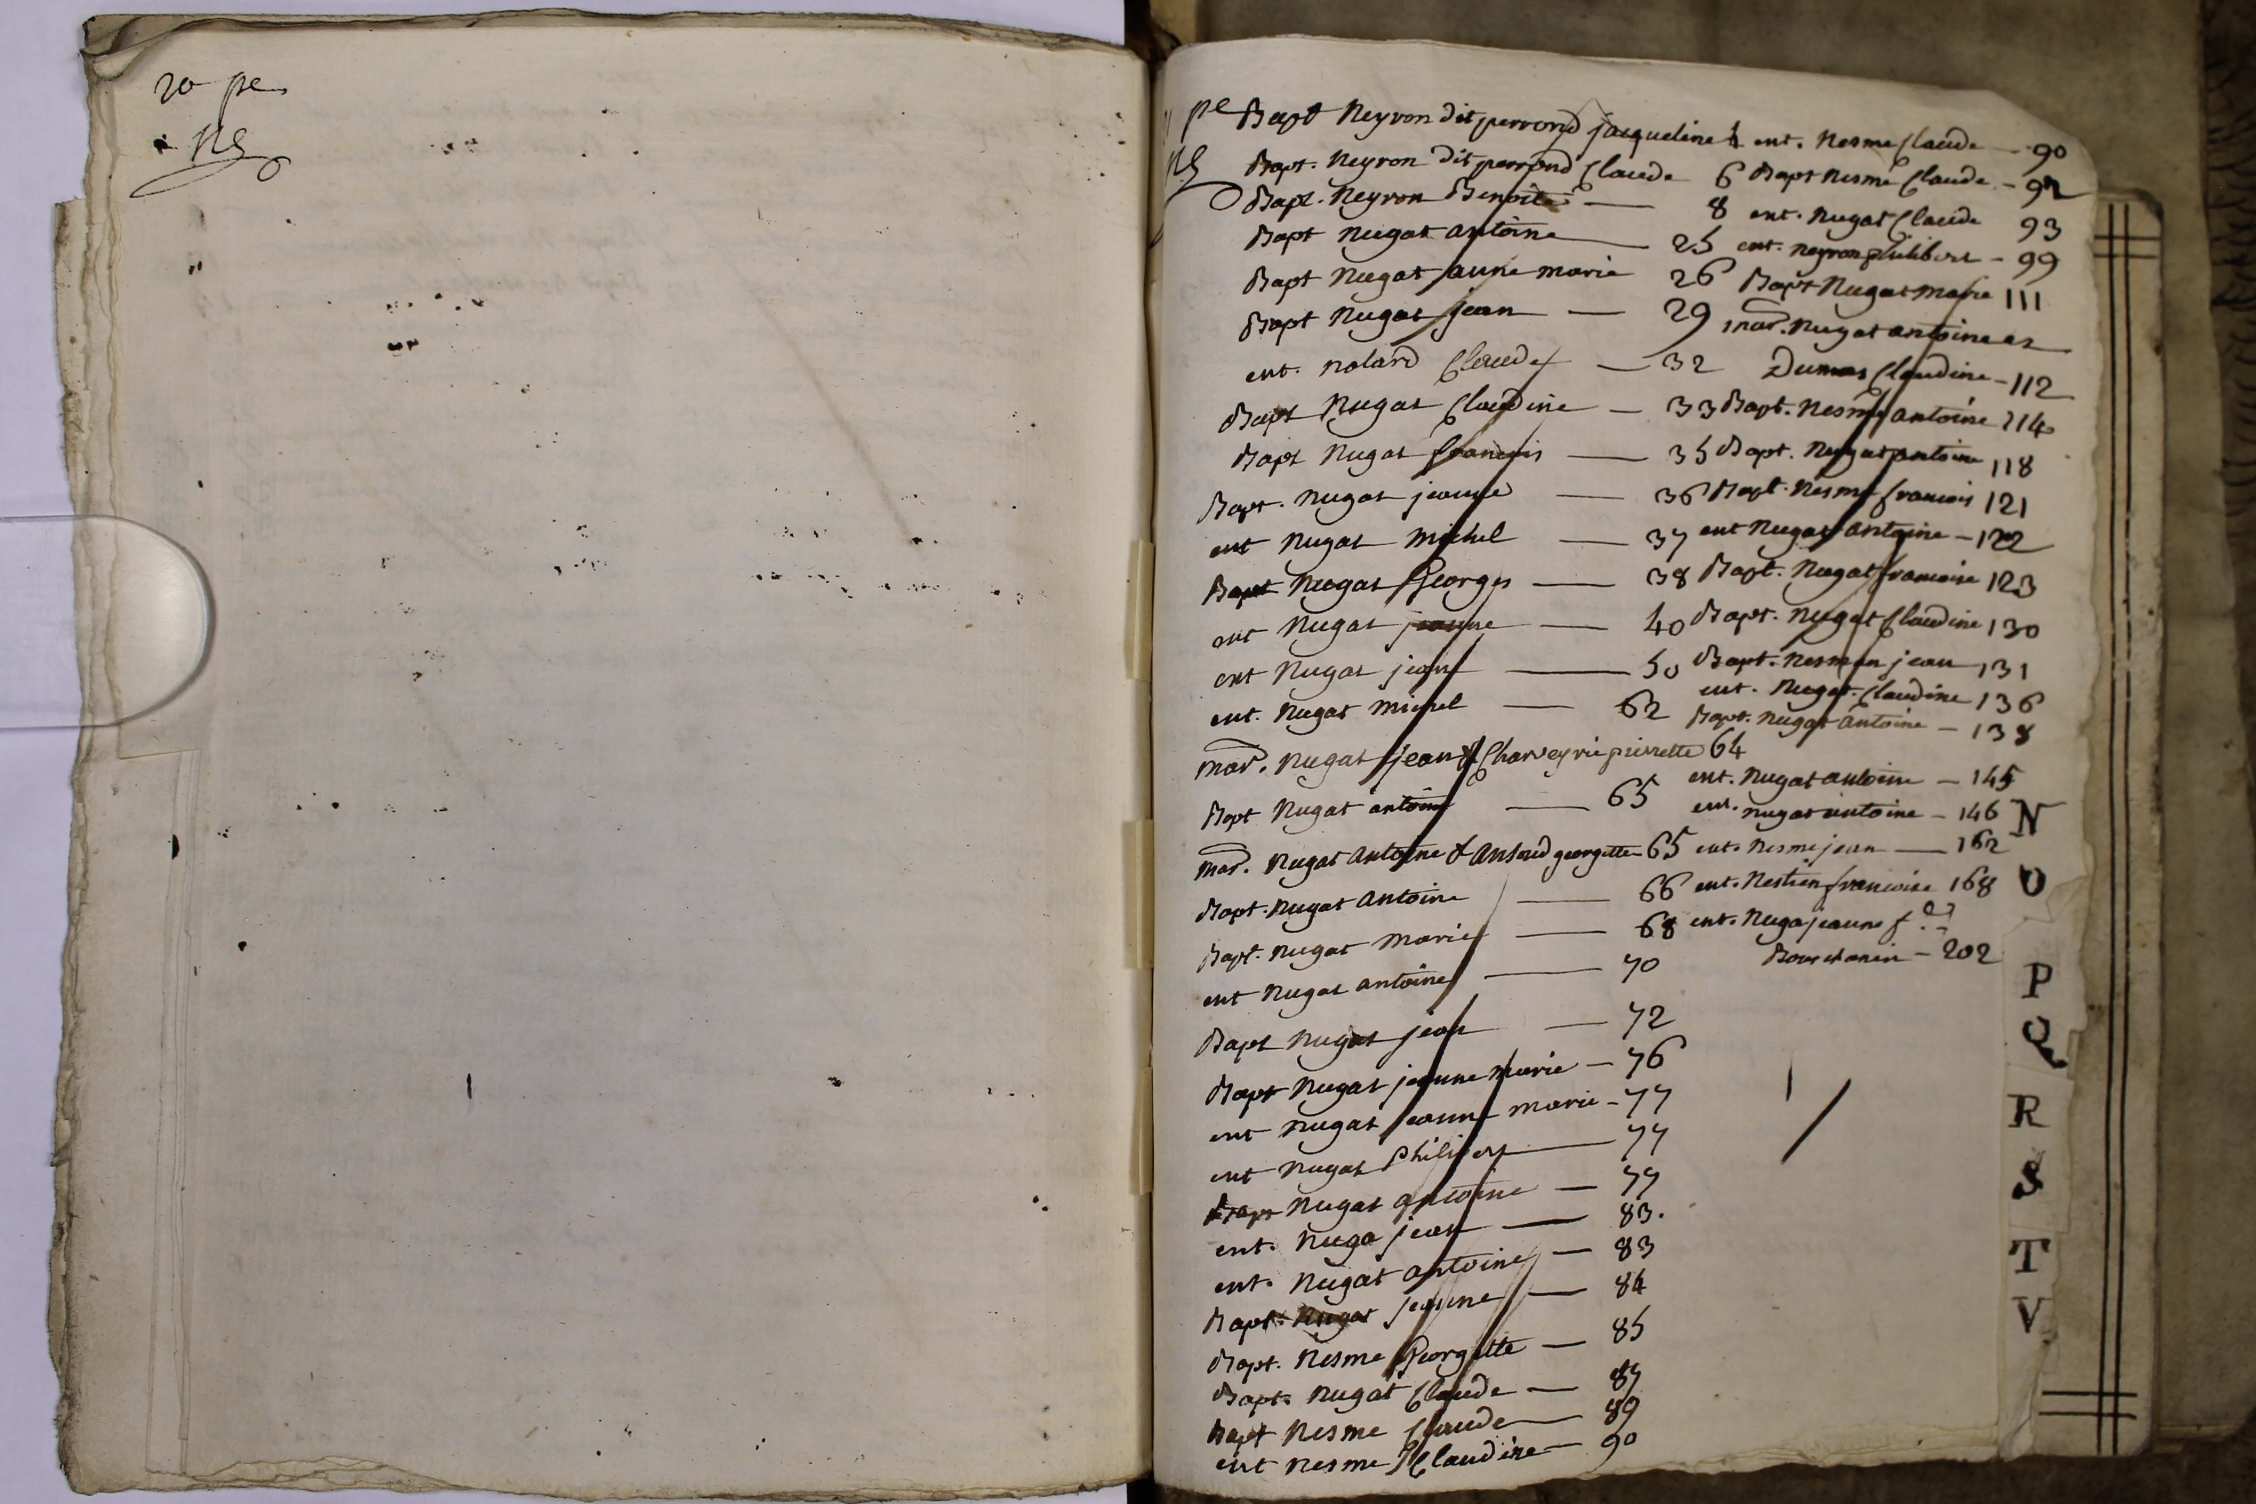 20 pe
Bapt Neyron dit perrond jacqueline 4
Bapt. Neyron dit perrond Claude 6
Bapt. Neyron Benoite — 8
Bapt Nugat antoine — 25
Bapt Nugat anne marie 26
Bapt Nugat jean — 29
ent. nolard Claude — 32
Bapt Nugat Claudine — 33
Bapt Nugat francois — 35
Bapt. Nugat jeanne — 36
ent Nugat Michel — 37
Bapt Nugat Georges — 38
ent Nugat jeanne — 40
ent Nugat jean — 50
ent. Nugat Michel — 62
mar. Nugat jean & Charveyrie pierrette 64
Bapt Nugat antoine — 65
mar. Nugat antoine & georgette 65
Bapt. Nugat antoine — 66
Bapt. Nugat Marie — 68
ent Nugat antoine — 70
Bapt Nugat jean — 72
Bapt Nugat jeanne Marie — 76
ent Nugat jeanne marie — 77
ent Nugat Philibert — 77
Bapt Nugat antoine — 77
ent. Nuga jean — 83.
ent. Nugat antoine — 83
Bapt. Nugat jeanne — 84
Bapt. Nesme Georgette — 85
Bapt. Nugat Claude — 87
Bapt Nesme Claude — 89
ent Nesme Claudine — 90
ent. Nesme Claude — 90
Bapt Nesme Claude — 92
ent. Nugat Claude 93
ent. neyron philibert — 99
Bapt Nugat Marie 111
mar. Nugat antoine et
Dumas Claudine — 112
Bapt. Nesme antoine 114
Bapt. Nugat antoine 118
Bapt. Nesme francois 121
ent Nugat antoine — 122
Bapt. Nugat francoise 123
Bapt. Nugat Claudine 130
Bapt. Nesme jean 131
ent. Nugat Claudine 136
Bapt. Nugat antoine — 138
ent. Nugat antoine — 145
ent. nugat antoine — 146
ent. Nesme jean — 162
ent. francoise 168
ent. Nuga jeanne
— 202
N
O
P
Q
R
S
T
V